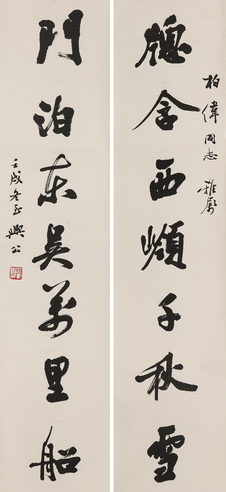 柏偉同志 雅屬
牕含西嶺千秋雪
門泊東吳萬里船
壬戌冬 公